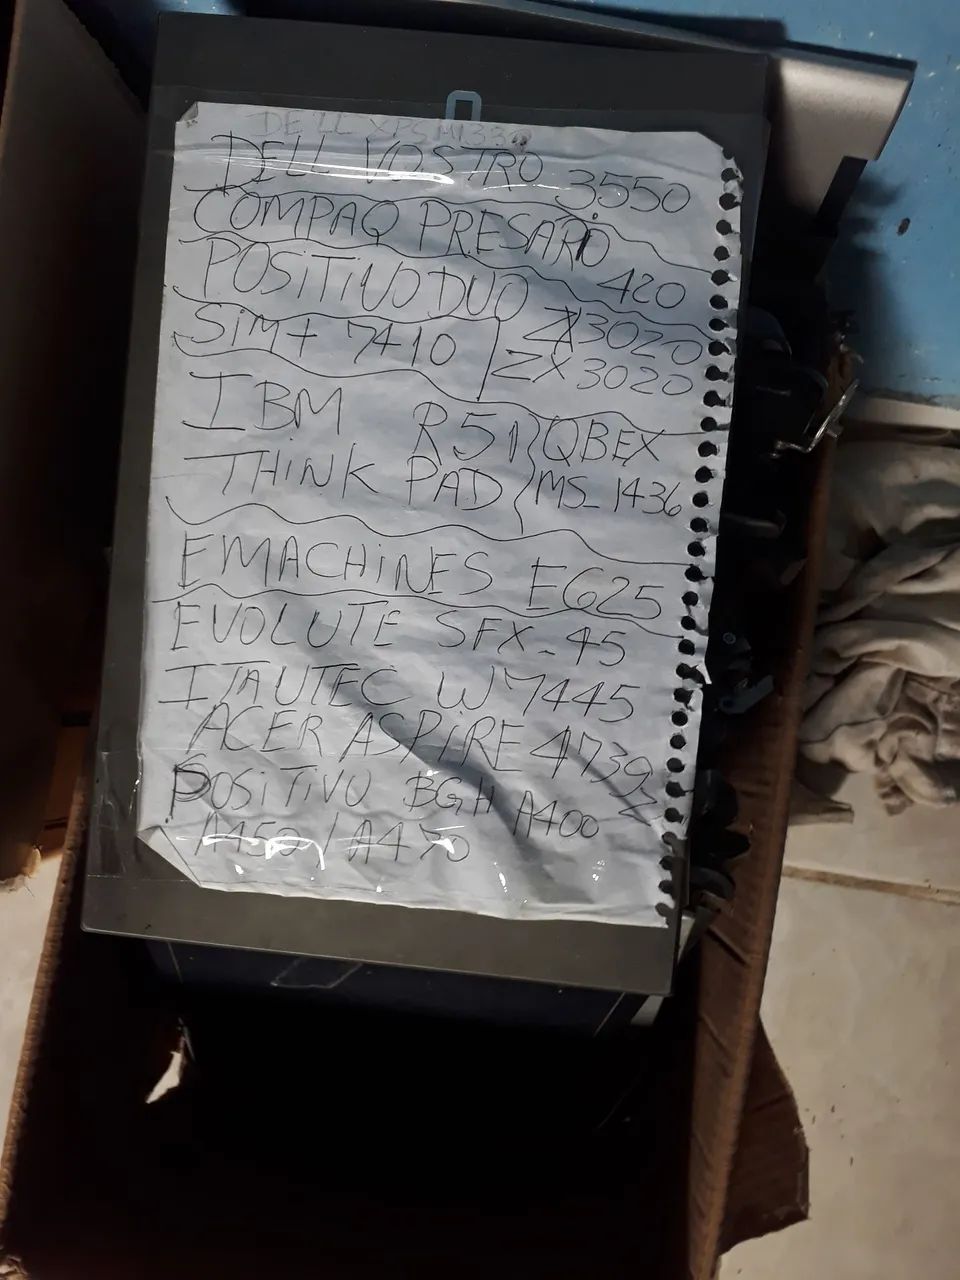 DELL XPS M1330
DELL VOSTRO 3550
COMPAQ PRESARIO 420
POSITIVO DUO ZX3020
SIM+ 7410 ZX 3020
IBM R51 QBEX
THINK PAD MS-1436
EMACHINES EG25
EVOLUTE SFX-45
ITAUTEC W7445
ACER ASPIRE 4739Z
POSITIVO BGH A400
A450/A470